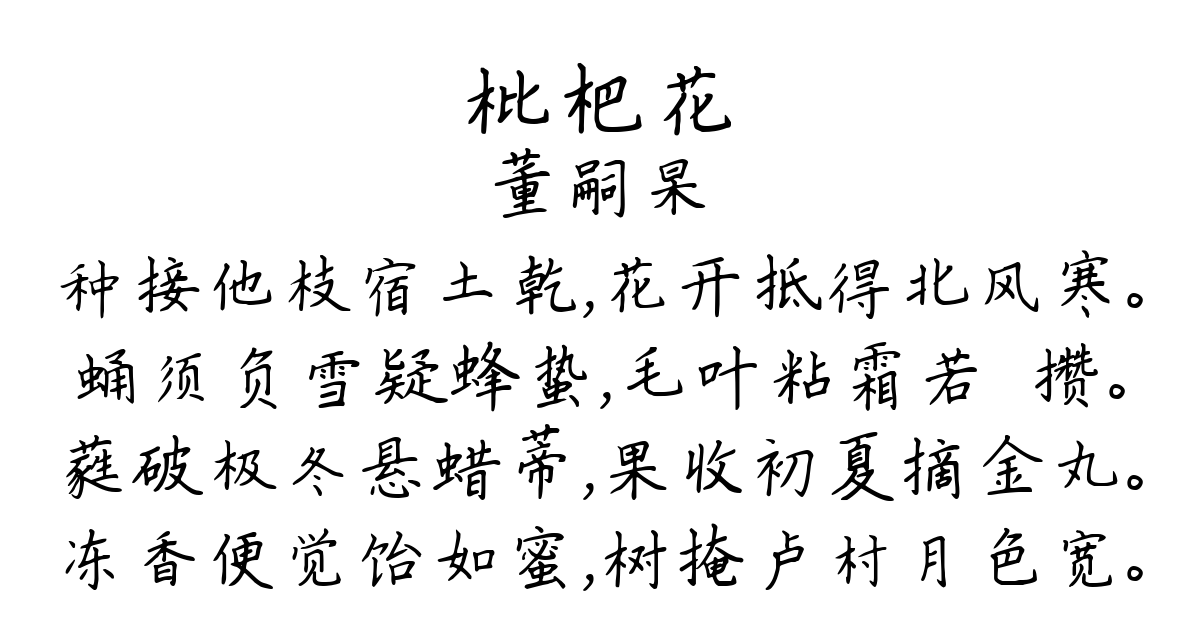 枇杷花
董嗣杲
种接他枝宿土乾,花开抵得北风寒。
蛹须负雪疑蜂蛰,毛叶粘霜若 攒。
蕤破极冬悬蜡蒂,果收初夏摘金丸。
冻香便觉饴如蜜,树掩卢村月色宽。